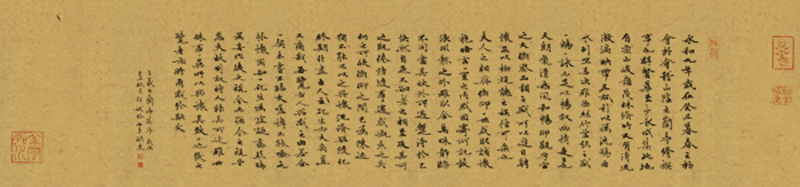 永和九年歲在癸丑暮春之初
會于會稽山陰之蘭亭脩禊
事也群賢畢至少長咸集此地
有崇山峻領茂林脩竹又有清流
激湍映帶左右引以為流觴曲
水列坐其次雖無絲竹管弦之盛
一觴一詠亦足以暢敘幽情是日也
天朗氣清惠風和暢仰觀宇宙
之大俯察品類之盛所以遊目騁
懷足以極視聽之娛信可樂也
夫人之相與俯仰一世或取諸懷
抱悟言一室之內或因寄所託放
浪形骸之外雖趣舍萬殊靜躁
不同當其欣於所遇暫得於己
快然自足不知老之將至及其所
之既惓情隨事遷感慨係之矣
向之所欣俯仰之間已為陳迹
猶不能不以之興懷況脩短隨化
終期於盡古人云死生亦大矣豈
不痛哉每覽昔人興感之由若合
一契未嘗不臨文嗟悼不能喻之
於懷固知一死生為虛誕齊彭殤
為妄作後之視今亦由今之視昔
悲夫故列敘時人錄其所述雖世
殊事異所以興懷其致一也後之
覽者亦將有感於斯文
王羲之蘭亭集序